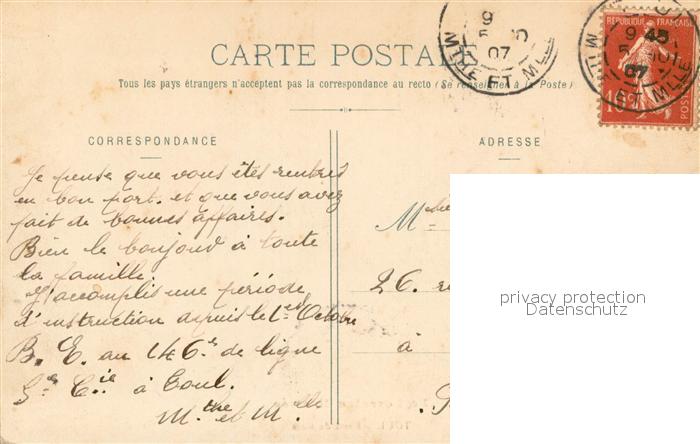 CARTE POSTALE
Tous les pays étrangers n'acceptent pas la correspondance au recto (Se renseigner à la Poste)
9
5
07
MTHE ET MLLE
RÉPUBLIQUE FRANÇAISE
9 45
5 10
07
ET MLLE
10c
POSTES
CORRESPONDANCE
ADRESSE
Je pense que vous êtes rentrés
en bon port. et que vous avez
fait de bonnes affaires.
Bien le bonjour à toute
la famille.
J'accomplis une période
d'instruction depuis le 1er Octobre
B. E. au 146e de ligne
5e Cie à Toul.
26. r
à
privacy protection
Datenschutz